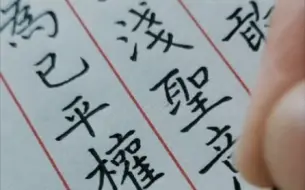 淺聖
為已平權